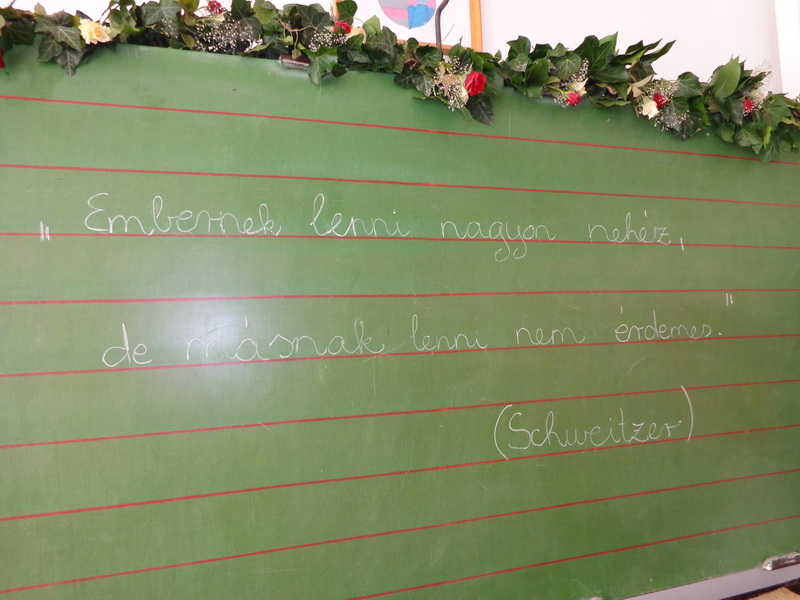 „ Embernek lenni nagyon nehéz,
de másnak lenni nem érdemes."
(Schweitzer)